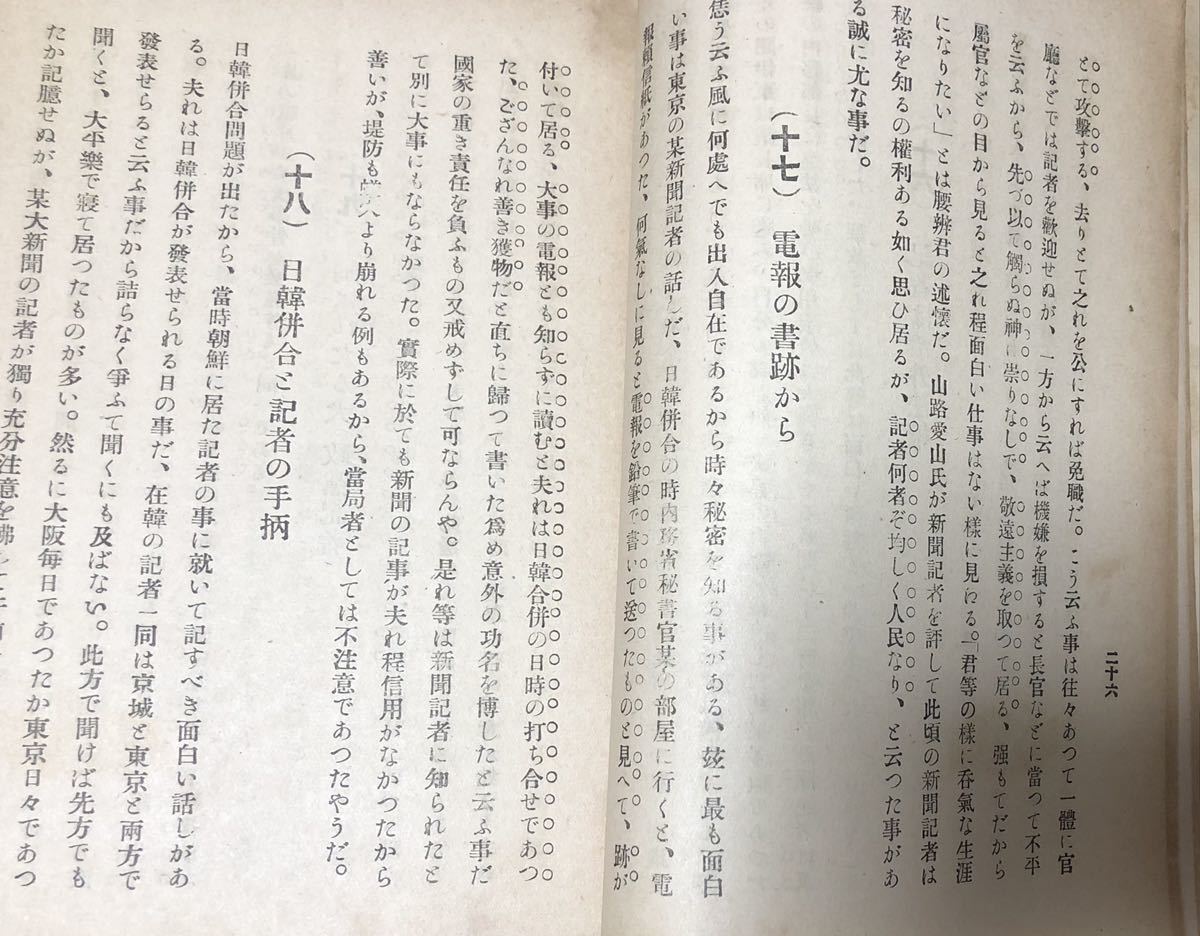 二十六
とて攻擊する、去りとて之れを公にすれば免職だ。こう云ふ事は往々あつて一體に官
廳などでは記者を歡迎せぬが、一方から云へば機嫌を損すると長官などに當つて不平
を云ふから、先づ以て觸らぬ神に崇りなしで、敬遠主義を取つて居る、强もてだから
屬官などの目から見ると之れ程面白い仕事はない樣に見ゆる。「君等の樣に呑氣な生涯
になりたい」とは腰辨君の述懷だ。山路愛山氏が新聞記者を評して此頃の新聞記者は
秘密を知るの權利ある如く思ひ居るが、記者何者ぞ均しく人民なり、と云つた事があ
る誠に尤な事だ。
(十七) 電報の書跡から
恁う云ふ風に何處へでも出入自在であるから時々秘密を知る事がある、玆に最も面白
い事は東京の某新聞記者の話しだ、日韓併合の時內務省秘書官某の部屋に行くと、電
報賴信紙があつた、何氣なしに見ると電報を鉛筆で書いて送つたものと見へて、跡が
付いて居る、大事の電報とも知らずに讀むと夫れは日韓合併の日時の打ち合せであつ
た、ござんなれ善き獲物だと直ちに歸つて書いた爲め意外の功名を博したと云ふ事だ
國家の重き責任を負ふもの又戒めずして可ならんや。是れ等は新聞記者に知られたと
て別に大事にもならなかつた。實際に於ても新聞の記事が夫れ程信用がなかつたから
善いが、堤防も蟻穴より崩れる例もあるから、當局者としては不注意であつたやうだ。
(十八) 日韓併合と記者の手柄
日韓併合問題が出たから、當時朝鮮に居た記者の事に就いて記すべき面白い話しがあ
る。夫れは日韓併合が發表せられる日の事だ、在韓の記者一同は京城と東京と兩方で
發表せらると云ふ事だから詰らなく爭ふて聞くにも及ばない。此方で聞けば先方でも
聞くと、大平樂で寢て居つたものが多い。然るに大阪每日であつたか東京日々であつ
たか記臆せぬが、某大新聞の記者が獨り充分注意を拂